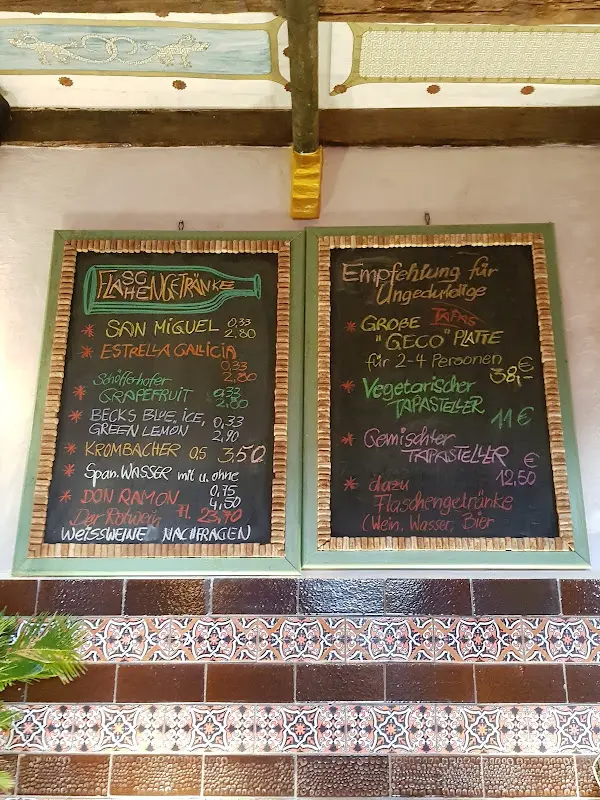 FLASCHENGETRÄNKE
* SAN MIGUEL 0,33
2,80
* ESTRELLA GALLICIA
0,33
2,80
Schöfferhofer
* GRAPEFRUIT 0,33
2,80
* BECKS BLUE, ICE,
GREEN LEMON 0,33
2,90
* KROMBACHER 0,5 3,50
* Span. WASSER mit u. ohne
0,75
4,50
* DON RAMON
Der Rotwein Fl. 23,90
WEISSWEINE NACHFRAGEN
Empfehlung für
Ungeduldige
* GROßE TAPAS
"GECO" PLATTE
für 2-4 Personen €
38,-
* Vegetarischer
TAPASTELLER
11 €
* Gemischter
TAPASTELLER €
12,50
* dazu
Flaschengetränke
(Wein, Wasser, Bier